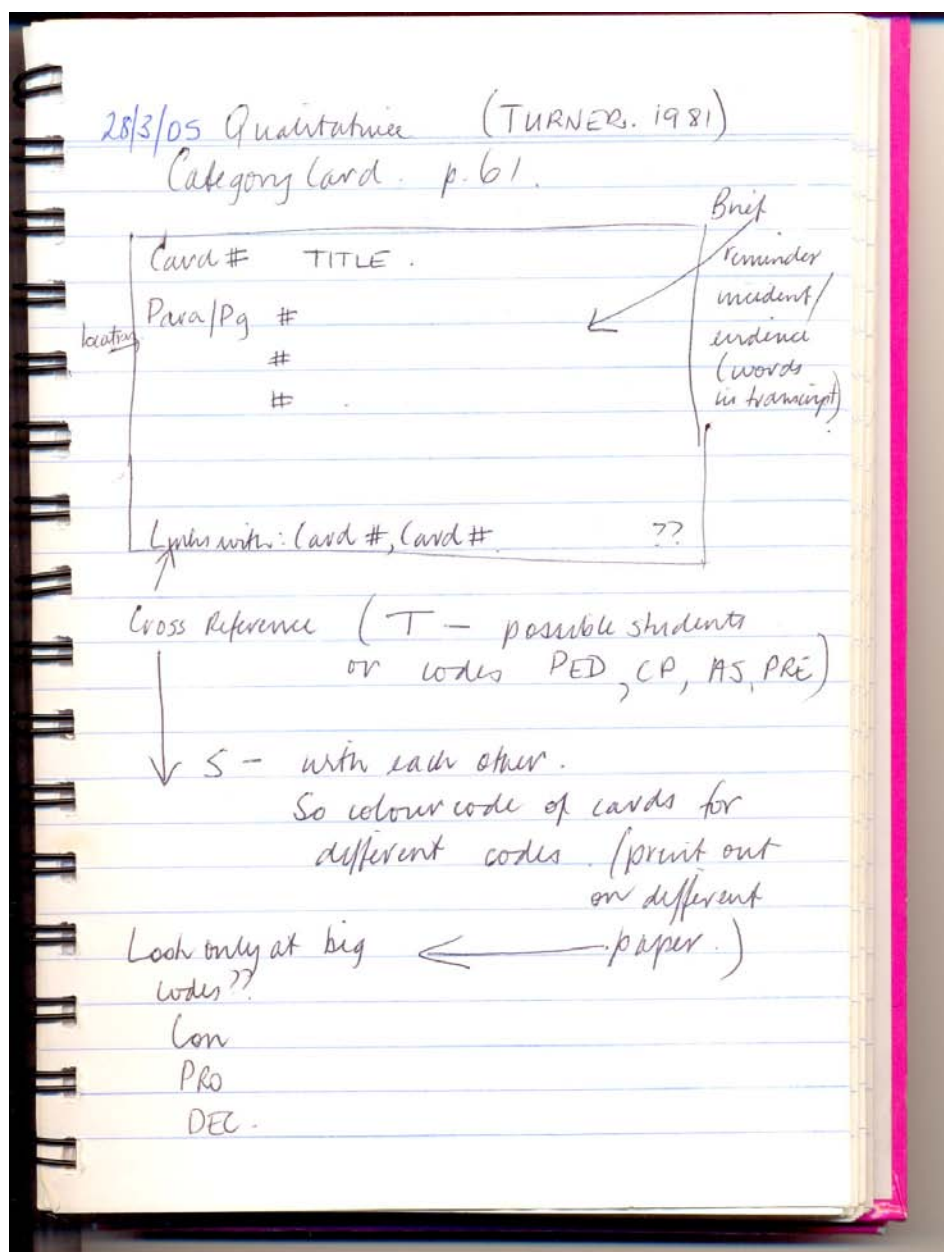 28/3/05 Qualitative (TURNER. 1981)
Category Card. p.61.
Card # TITLE.
Para/Pg #
location
#
#
Brief
reminder
incident/
evidence
(words
in transcript)
Links with: Card #, Card # ??
Cross Reference (T — possible students
or codes PED, CP, AS, PRE)
S - with each other.
So colour code of cards for
different codes. (print out
on different
paper.)
Look only at big
codes??
Con
PRO
DEC.